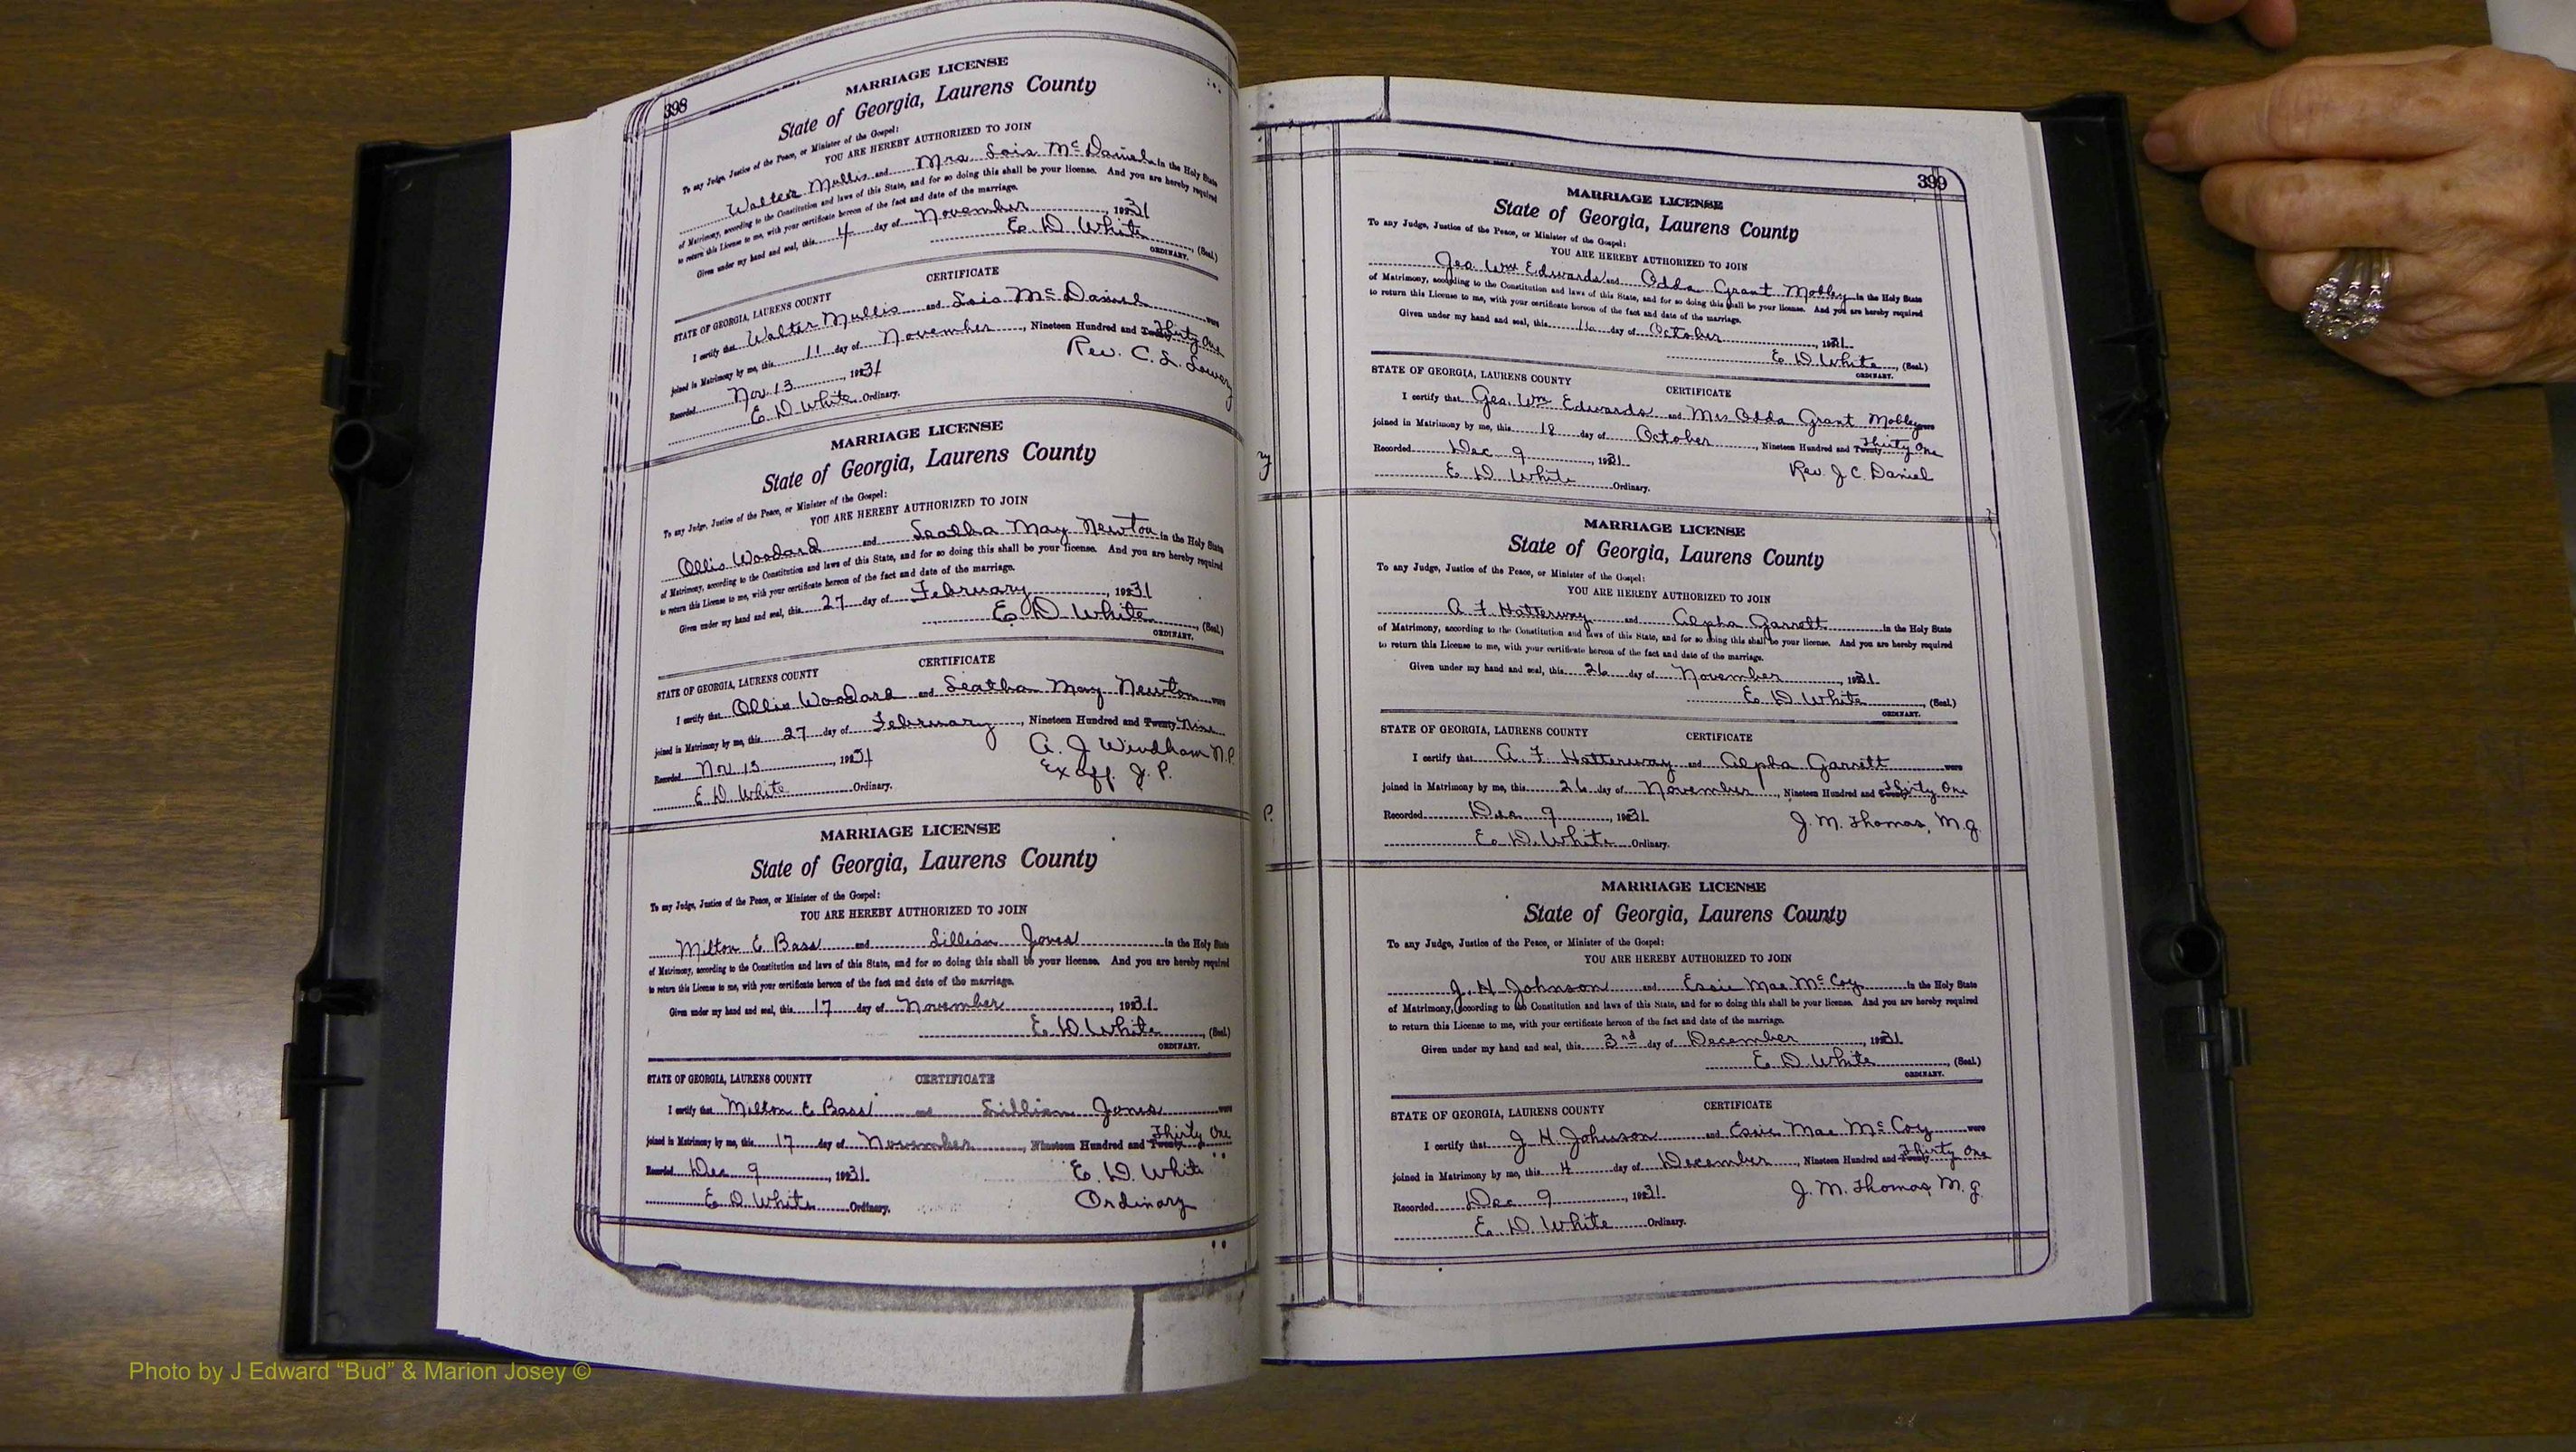 398
MARRIAGE LICENSE
State of Georgia, Laurens County
To any Judge, Justice of the Peace, or Minister of the Gospel:
YOU ARE HEREBY AUTHORIZED TO JOIN
Walter Mullis and Mrs Lois McDaniel in the Holy State
of Matrimony, according to the Constitution and laws of this State, and for so doing this shall be your license. And you are hereby required
to return this License to me, with your certificate hereon of the fact and date of the marriage.
Given under my hand and seal, this 4 day of November, 1931
E. D. White, (Seal)
ORDINARY.
CERTIFICATE
STATE OF GEORGIA, LAURENS COUNTY
I certify that Walter Mullis and Lois McDaniel were
joined in Matrimony by me, this 11 day of November, Nineteen Hundred and Thirty One
Rev. C. L. Lowery
Recorded Nov 13, 1931
E. D. White Ordinary.
MARRIAGE LICENSE
State of Georgia, Laurens County
To any Judge, Justice of the Peace, or Minister of the Gospel:
YOU ARE HEREBY AUTHORIZED TO JOIN
Ollis Woodard and Leatha May Newton in the Holy State
of Matrimony, according to the Constitution and laws of this State, and for so doing this shall be your license. And you are hereby required
to return this License to me, with your certificate hereon of the fact and date of the marriage.
Given under my hand and seal, this 27 day of February, 1931
E. D. White, (Seal)
ORDINARY.
CERTIFICATE
STATE OF GEORGIA, LAURENS COUNTY
I certify that Ollis Woodard and Leatha May Newton were
joined in Matrimony by me, this 27 day of February, Nineteen Hundred and Twenty Nine
A. J. Windham N.P.
Recorded Nov 13, 1931
Ex off. J. P.
E. D. White Ordinary.
MARRIAGE LICENSE
State of Georgia, Laurens County
To any Judge, Justice of the Peace, or Minister of the Gospel:
YOU ARE HEREBY AUTHORIZED TO JOIN
Milton E Bass and Lillian Jones in the Holy State
of Matrimony, according to the Constitution and laws of this State, and for so doing this shall be your license. And you are hereby required
to return this License to me, with your certificate hereon of the fact and date of the marriage.
Given under my hand and seal, this 17 day of November, 1931.
E. D. White, (Seal)
ORDINARY.
STATE OF GEORGIA, LAURENS COUNTY CERTIFICATE
I certify that Milton E Bass and Lillian Jones were
joined in Matrimony by me, this 17 day of November, Nineteen Hundred and Twenty Thirty One
Recorded Dec 9, 1931. E. D. White
E. D. White Ordinary. Ordinary
399
MARRIAGE LICENSE
State of Georgia, Laurens County
To any Judge, Justice of the Peace, or Minister of the Gospel:
YOU ARE HEREBY AUTHORIZED TO JOIN
Geo. Wm Edwards and Odda Grant Mobley in the Holy State
of Matrimony, according to the Constitution and laws of this State, and for so doing this shall be your license. And you are hereby required
to return this License to me, with your certificate hereon of the fact and date of the marriage.
Given under my hand and seal, this 16 day of October, 1931.
E. D. White, (Seal.)
ORDINARY.
STATE OF GEORGIA, LAURENS COUNTY CERTIFICATE
I certify that Geo. Wm Edwards and Mrs Odda Grant Mobley were
joined in Matrimony by me, this 18 day of October, Nineteen Hundred and Twenty Thirty One
Recorded Dec 9, 1931. Rev. J C. Daniel
E. D. White Ordinary.
MARRIAGE LICENSE
State of Georgia, Laurens County
To any Judge, Justice of the Peace, or Minister of the Gospel:
YOU ARE HEREBY AUTHORIZED TO JOIN
A. F. Hatterway and Alpha Garrett in the Holy State
of Matrimony, according to the Constitution and laws of this State, and for so doing this shall be your license. And you are hereby required
to return this License to me, with your certificate hereon of the fact and date of the marriage.
Given under my hand and seal, this 26 day of November, 1931.
E. D. White, (Seal.)
ORDINARY.
STATE OF GEORGIA, LAURENS COUNTY CERTIFICATE
I certify that A. F. Hatterway and Alpha Garrett were
joined in Matrimony by me, this 26 day of November, Nineteen Hundred and Twenty Thirty One
Recorded Dec 9, 1931. J. M. Thomas, M.G.
E. D. White Ordinary.
MARRIAGE LICENSE
State of Georgia, Laurens County
To any Judge, Justice of the Peace, or Minister of the Gospel:
YOU ARE HEREBY AUTHORIZED TO JOIN
J. H Johnson and Essie Mae McCoy in the Holy State
of Matrimony, according to the Constitution and laws of this State, and for so doing this shall be your license. And you are hereby required
to return this License to me, with your certificate hereon of the fact and date of the marriage.
Given under my hand and seal, this 3nd day of December, 1931.
E. D. White, (Seal.)
ORDINARY.
STATE OF GEORGIA, LAURENS COUNTY CERTIFICATE
I certify that J H Johnson and Essie Mae McCoy were
joined in Matrimony by me, this 4 day of December, Nineteen Hundred and Twenty Thirty One
Recorded Dec 9, 1931. J. M. Thomas M. G.
E. D. White Ordinary.
Photo by J Edward “Bud” & Marion Josey ©